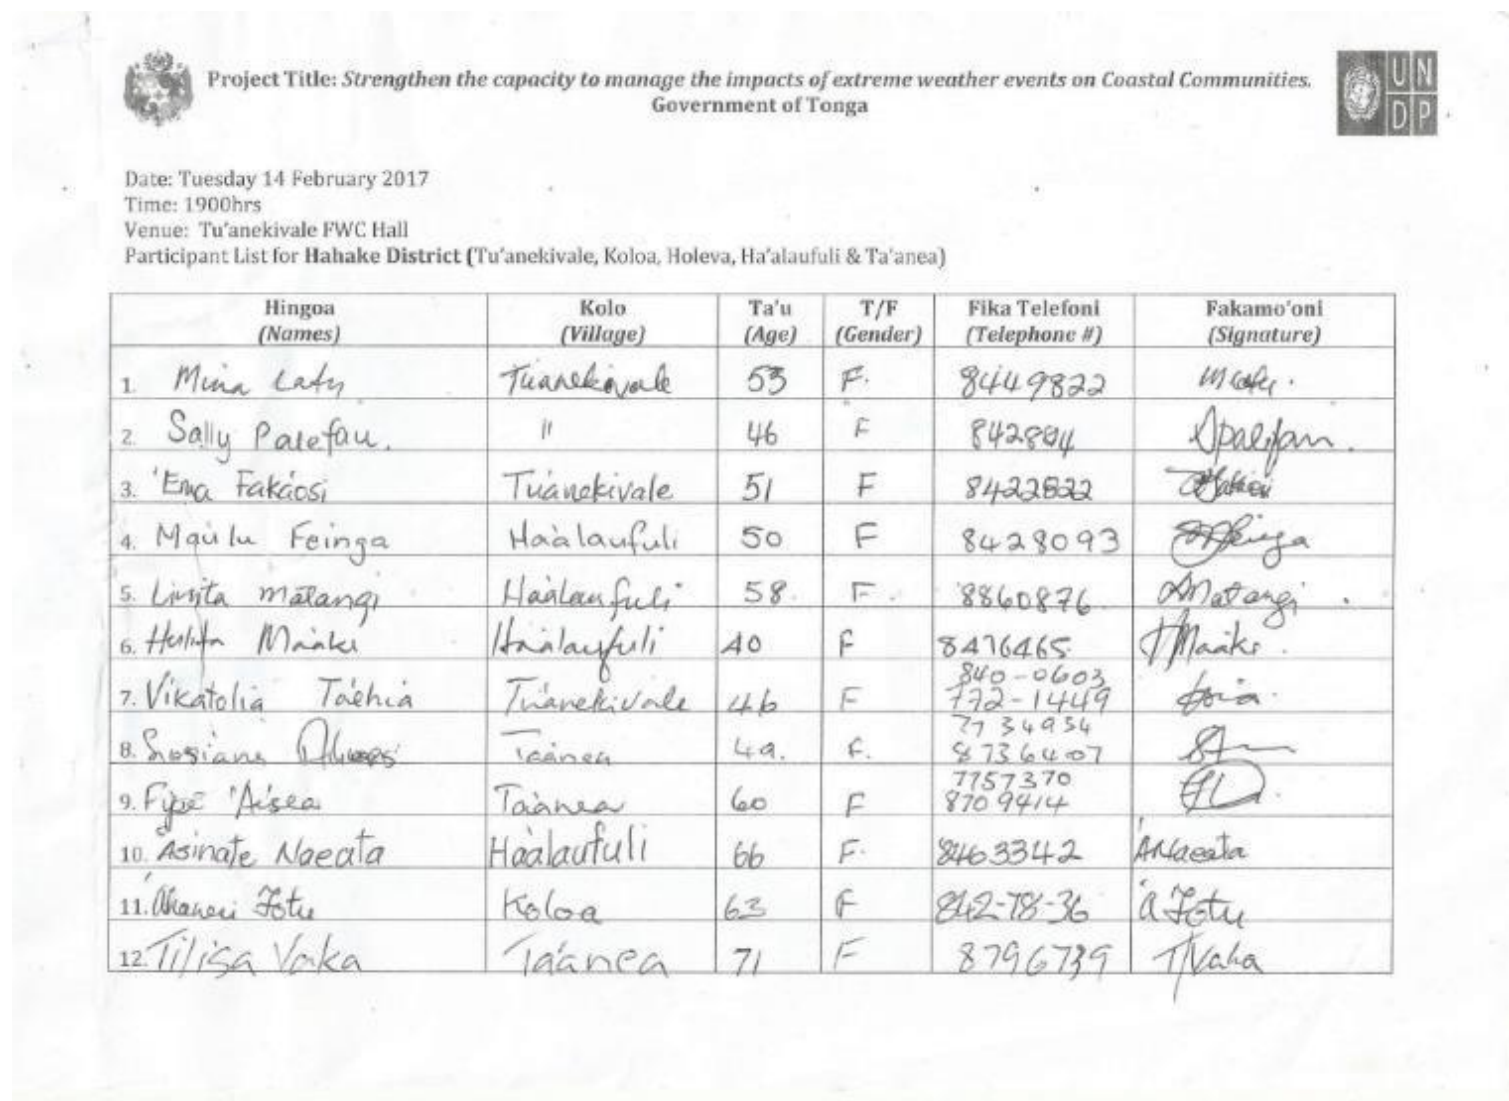 Project Title: Strengthen the capacity to manage the impacts of extreme weather events on Coastal Communities.
Government of Tonga
UN
DP
Date: Tuesday 14 February 2017
Time: 1900hrs
Venue: Tu'anekivale FWC Hall
Participant List for Hahake District (Tu'anekivale, Koloa, Holeva, Ha'alaufuli & Ta'anea)
Hingoa Kolo Ta'u T/F Fika Telefoni Fakamo'oni
(Names) (Village) (Age) (Gender) (Telephone #) (Signature)
1. Mina Latu Tu'anekivale 53 F. 8449822
2. Sally Palefau. " 46 F
3. 'Ema Faka'osi Tu'anekivale 51 F 8422822
4. Ma'ulu Feinga Ha'alaufuli 50 F 8428093
5. Matangi Ha'alaufuli 58. F. 8860876 Matangi
6. Maake Ha'alaufuli 40 F 8476465 Maake
840-0603
7. Vikatolia Ta'ehia Tu'anekivale 46 F 772-1449
7734934
8. Siosiana Ta'anea 49. F. 8736407
7757370
9. 'Aisea Ta'anea 60 F 8709414
10. Asinate Naeata Ha'alaufuli 66 F. 8463342 ANaeata
11. Fotu Koloa 63 F 842-78-36 'a Fotu
12. Tilisa Vaka Ta'anea 71 F 8796739 T/Vaka